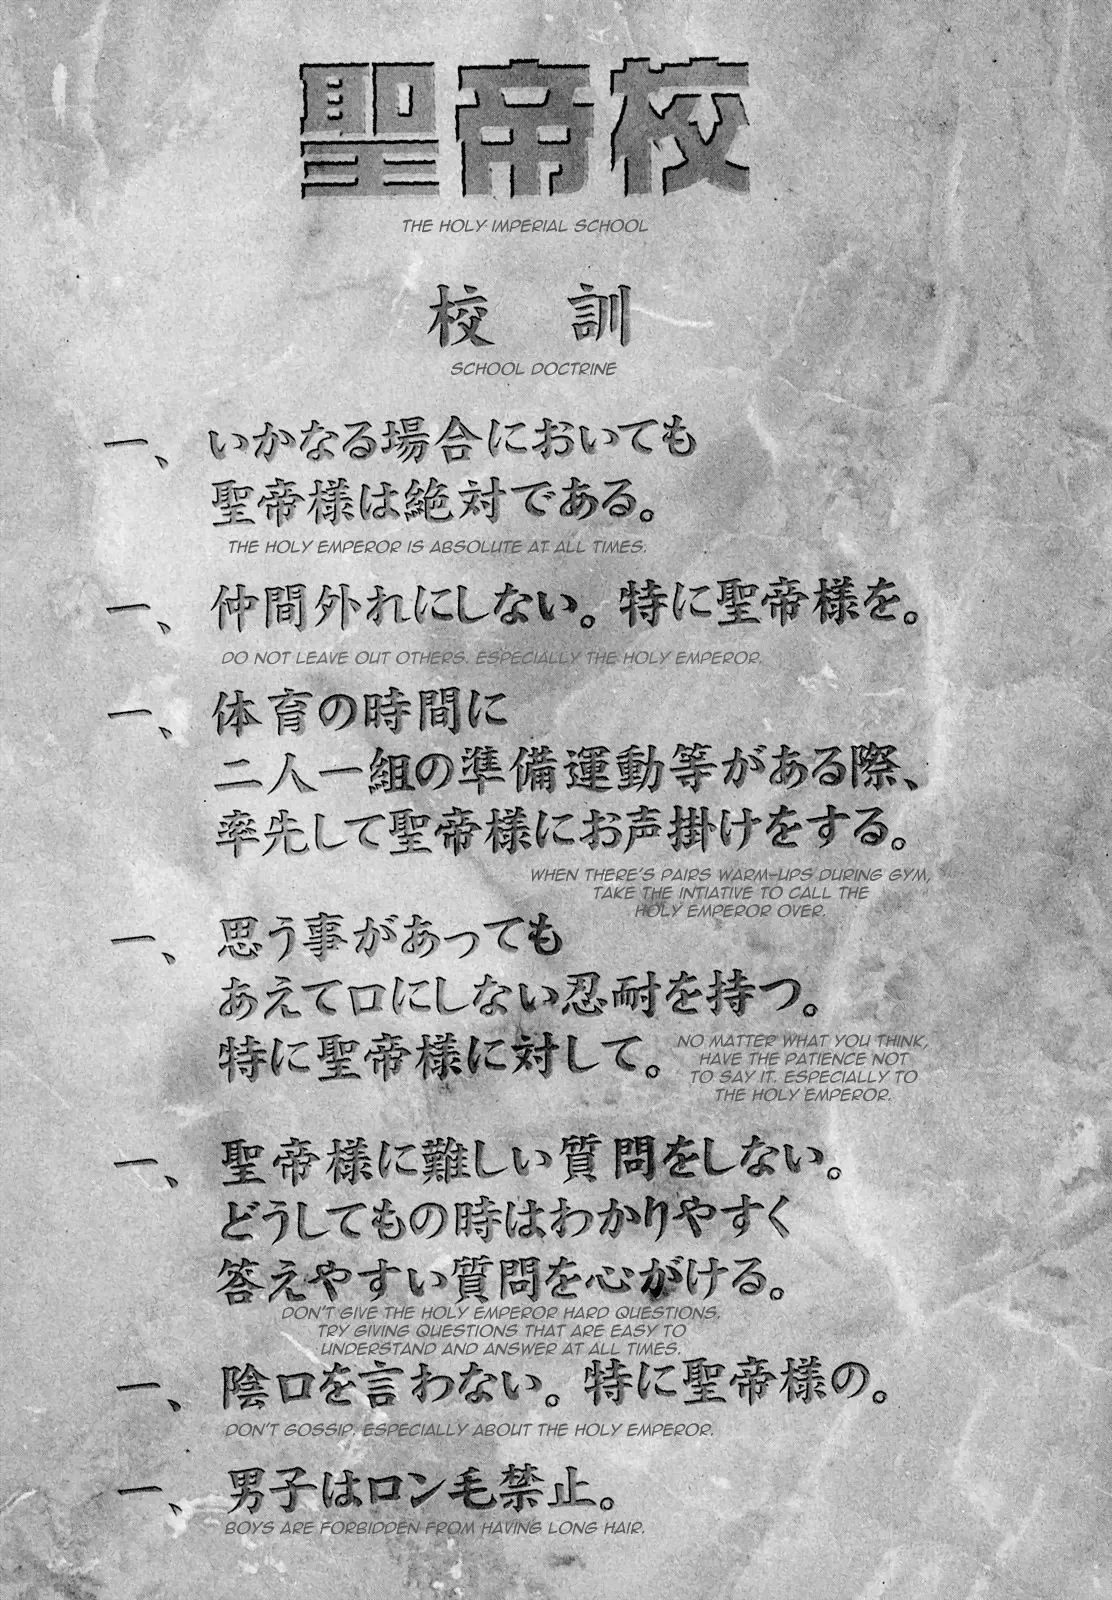 聖帝校
THE HOLY IMPERIAL SCHOOL
校 訓
SCHOOL DOCTRINE
一、いかなる場合においても
聖帝様は絶対である。
THE HOLY EMPEROR IS ABSOLUTE AT ALL TIMES.
一、仲間外れにしない。特に聖帝様を。
DO NOT LEAVE OUT OTHERS. ESPECIALLY THE HOLY EMPEROR.
一、体育の時間に
二人一組の準備運動等がある際、
率先して聖帝様にお声掛けをする。
WHEN THERE'S PAIRS WARM-UPS DURING GYM,
TAKE THE INTIATIVE TO CALL THE
HOLY EMPEROR OVER.
一、思う事があっても
あえて口にしない忍耐を持つ。
特に聖帝様に対して。
NO MATTER WHAT YOU THINK,
HAVE THE PATIENCE NOT
TO SAY IT. ESPECIALLY TO
THE HOLY EMPEROR.
一、聖帝様に難しい質問をしない。
どうしてもの時はわかりやすく
答えやすい質問を心がける。
DON'T GIVE THE HOLY EMPEROR HARD QUESTIONS.
TRY GIVING QUESTIONS THAT ARE EASY TO
UNDERSTAND AND ANSWER AT ALL TIMES.
一、陰口を言わない。特に聖帝様の。
DON'T GOSSIP. ESPECIALLY ABOUT THE HOLY EMPEROR.
一、男子はロン毛禁止。
BOYS ARE FORBIDDEN FROM HAVING LONG HAIR.